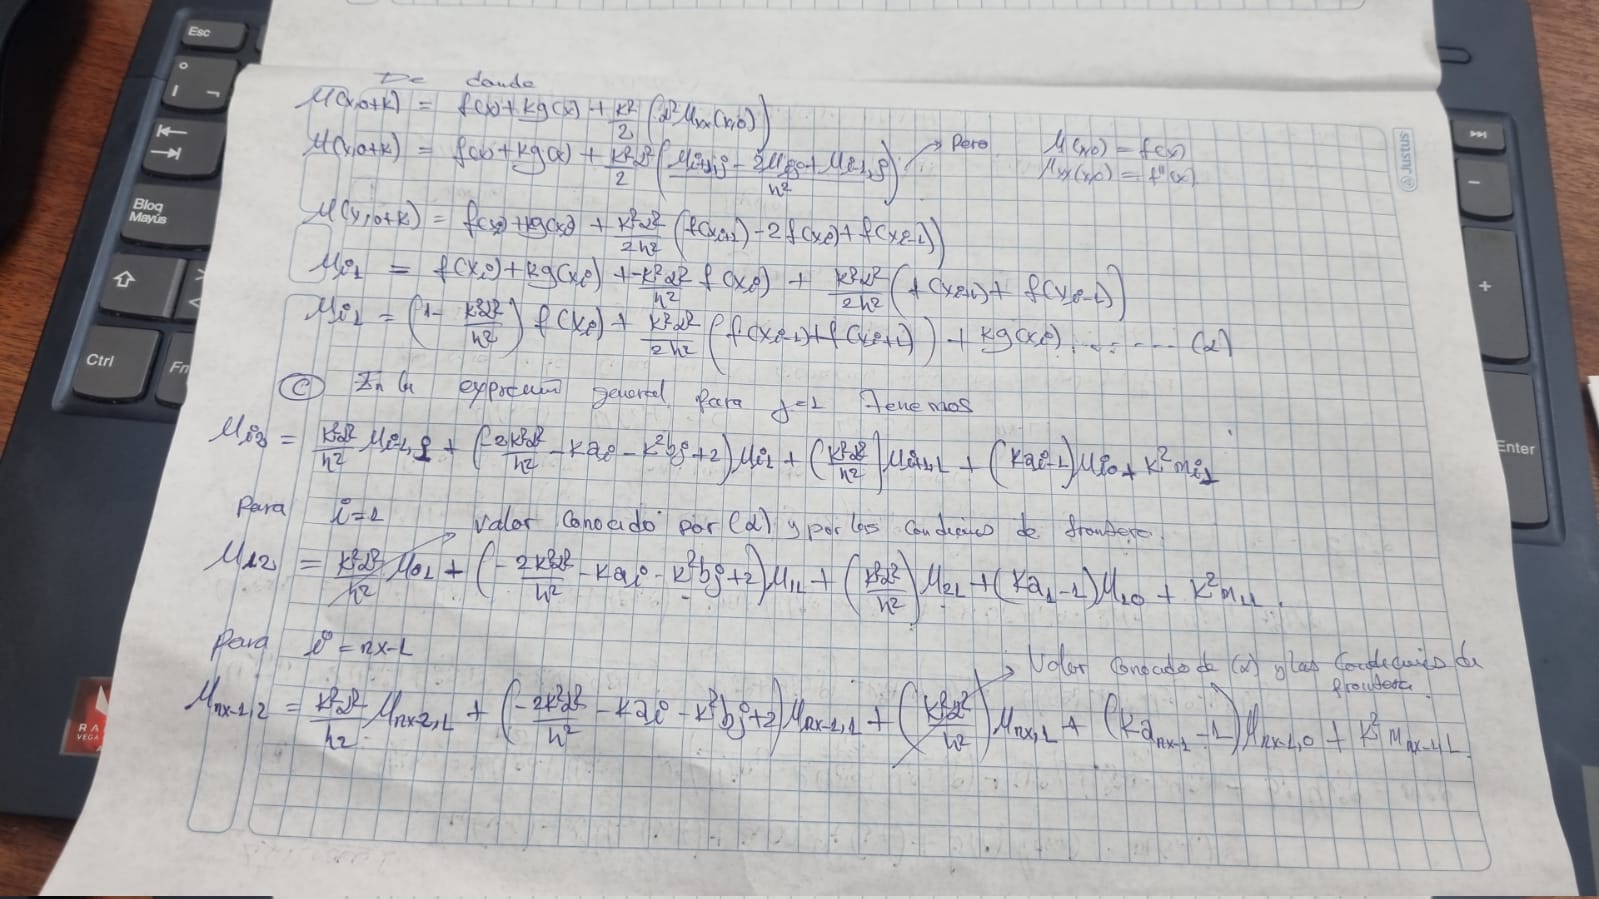 Esc
De donde
M(x,0+k) = f(x)+kg(x)+ k²/2 (α² Mxx(x,0))
M(x,0+k) = f(x)+kg(x) + k²α²/2 (Mi+1,j - 2Mi,0 + Mi-1,j / h²) → Pero
M(x,0) = f(x)
Mxx(x,0) = f''(x)
Justus
M(x,0+k) = f(xi)+kg(xi) + k²α²/2h² (f(xi+1) - 2f(xi) + f(xi-1))
Mi1 = f(xi)+kg(xi) + -k²α²/h² f(xi) + k²α²/2h² (f(xi+1) + f(xi-1))
Mi1 = (1 - k²α²/h²) f(xi) + k²α²/2h² (f(xi-1)+f(xi+1)) + kg(xi) ........ (α)
Bloq
Mayús
Ctrl
Fn
Enter
C En la expresión general para j=1 Tenemos
Mi2 = k²α²/h² Mi-1,1 + (-2k²α²/h² - kai - k²bj + 2) Mi1 + (k²α²/h²) Mi+1,1 + (kai-1) Mi0 + k² mi1
Para i=1 → Valor Conocido por (α) y por las condiciones de frontera.
M12 = k²α²/h² M01 + (-2k²α²/h² - kai - k²bj + 2) M11 + (k²α²/h²) M21 + (ka1-1) M10 + k² m11.
Para i = nx-1
→ Valor Conocido de (α) y las Condiciones de frontera.
Mnx-1,2 = k²α²/h² Mnx-2,1 + (-2k²α²/h² - kai - k²bj + 2) Mnx-1,1 + (k²α²/h²) Mnx,1 + (kanx-1 - 1) Mnx-1,0 + k² mnx-1,1
VEGA